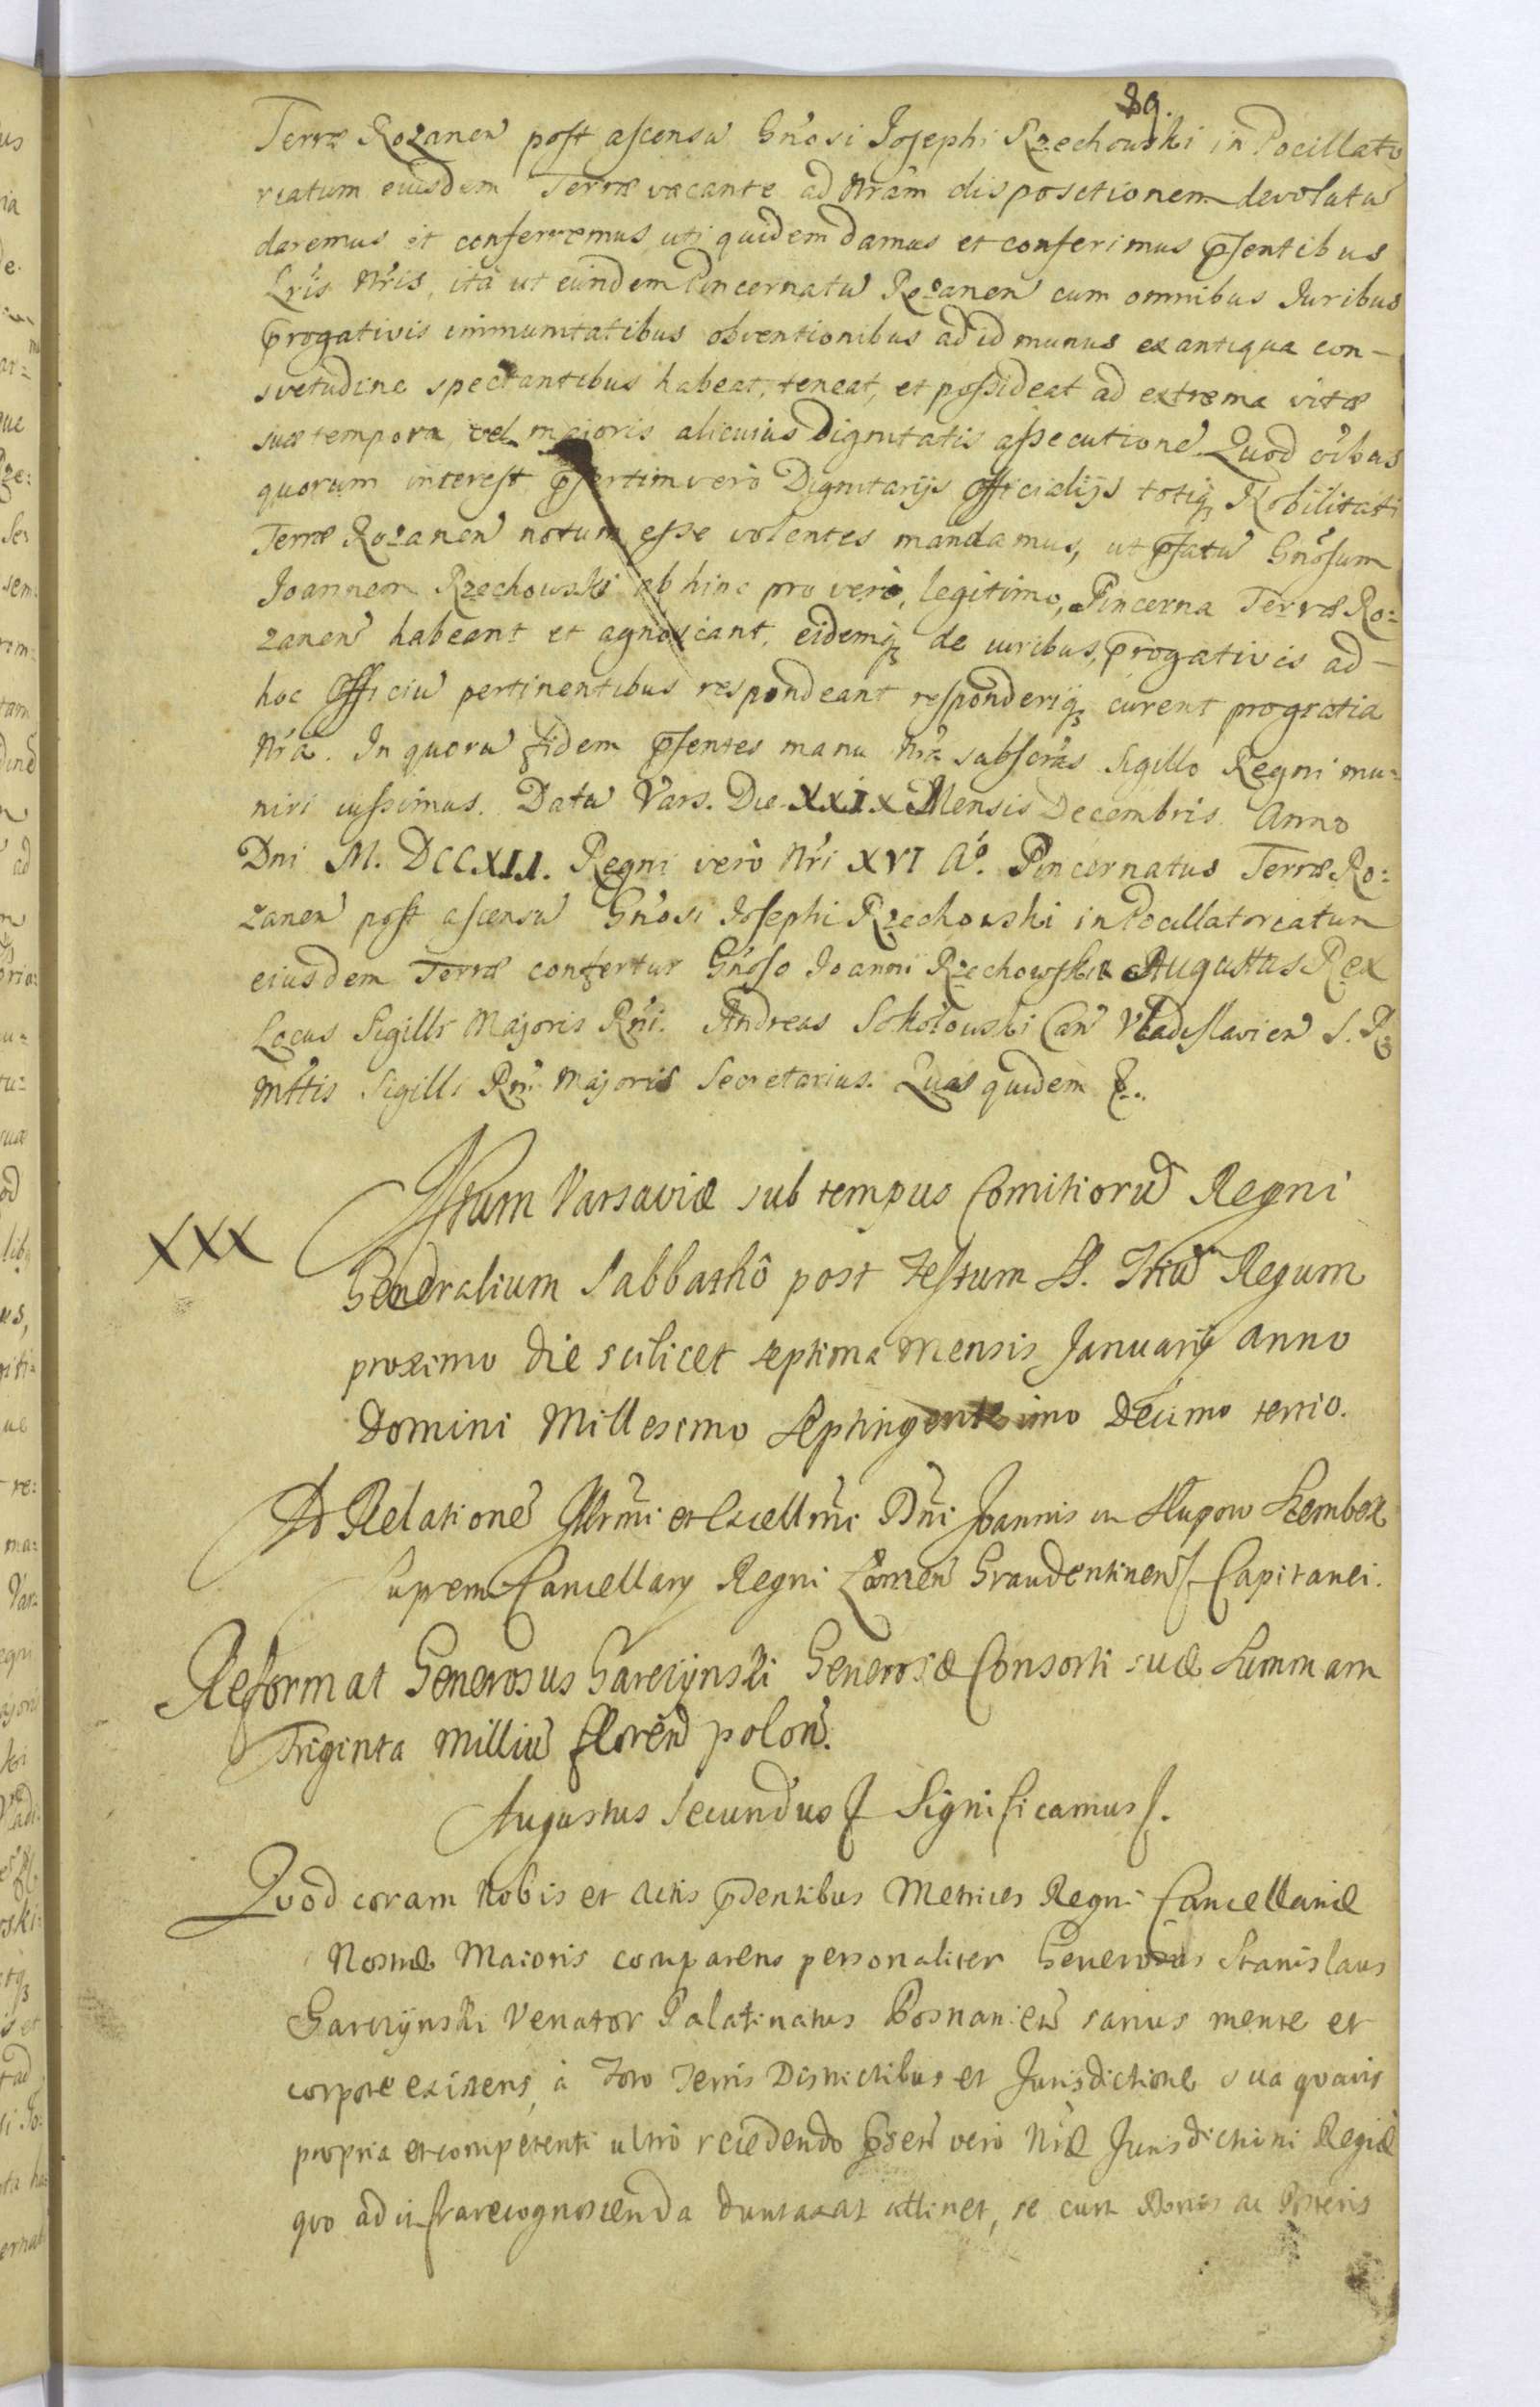 89.
Terræ Rozanen̄ post ascensũ Gn̄osi Josephi Rzechowski in Pocillato
reatum eiusdem Terræ vacante ad Nrãm dispositionem devolutũ
daremus et conferremus, uti quidem damus et conferimus p̄sentibus
Lrĩs Nrĩs, ità ut eundem Pincernatũ Rozanen̄ cum omnibus Juribus
p̄rogativis immunitatibus obventionibus ad id munus ex antiqua con-
svetudine spectantibus habeat, teneat, et possideat ad extrema vitæ
suæ tempora, vel majoris alicuius Dignitatis assecutionẽ. Quod oĩbus
quorum interest p̄sertim verò Dignitarijs officialijs totiq̃ Nobilitati
Terræ Rozanen̄ notum esse volentes mandamus, ut p̄fatũ Gnõsum
Joannem Rzechowski ab hinc pro verò, legitimo, Pincerna Terræ Ro:
zanen̄ habeant et agnoscant, eidemq̃ de iuribus, p̄rogativis ad-
hoc Officiũ pertinentibus respondeant responderiq̃ curent pro gratia
Nrã. In quorũ fidem p̄sentes manu Nrã subscrãs Sigillo Regni mu-
niri iussimus. Datũ Vars. Die XXIX Mensis Decembris Anno
Dni M. DCCXII. Regni verò Nrĩ XVI Aº. Pincernatus Terræ Ro:
zanen̄ post ascensũ Gnõsi Josephi Rzechowski in Pocillatoreatum
eiusdem Terræ confertur Gnõso Joanni Rzechowski. Augustus Rex
Locus Sigilli Majoris Rnĩ. Andreas Sokołowski Can̄ Vladislavien̄ S. R.
Mttis Sigilli Rnĩ Majoris Secretarius. Quas quidem &..
XXX
Actum Varsaviæ sub tempus Comitiorũ Regni
Generalium Sabbathô post Festum SS. Triũ Regum
proximo die scilicet septima Mensis Januarij anno
Domini Millesimo Septingentesimo Decimo tertio.
Ad Relationẽ Illrmĩ et Excellmĩ Dnĩ Joannis in Słupow Szembek
Supremi Cancellarij Regni Łomzen̄ Graudentinen̄ & Capitanei.
Reformat Generosus Garczynski Generosæ Consorti suæ Summam
Triginta Milliũ floren̄ polon̄.
Augustus Secundus & Significamus &.
Quod coram Nobis et Actis p̄dentibus Metrices Regni Cancellariæ
Nostræ Maioris comparens personaliter Generosus Stanislaus
Garczynski Venator Palatinatus Posnanien̄ sanus mente et
corpore existens, à Foro Terris Districtibus et Jurisdictione sua quavis
propria et competenti ultrò recedendo p̄senti verò Nræ Jurisdictioni Regiæ
quo ad infrarecognoscenda duntaxat attinet, se cum Bonis ac Posteris